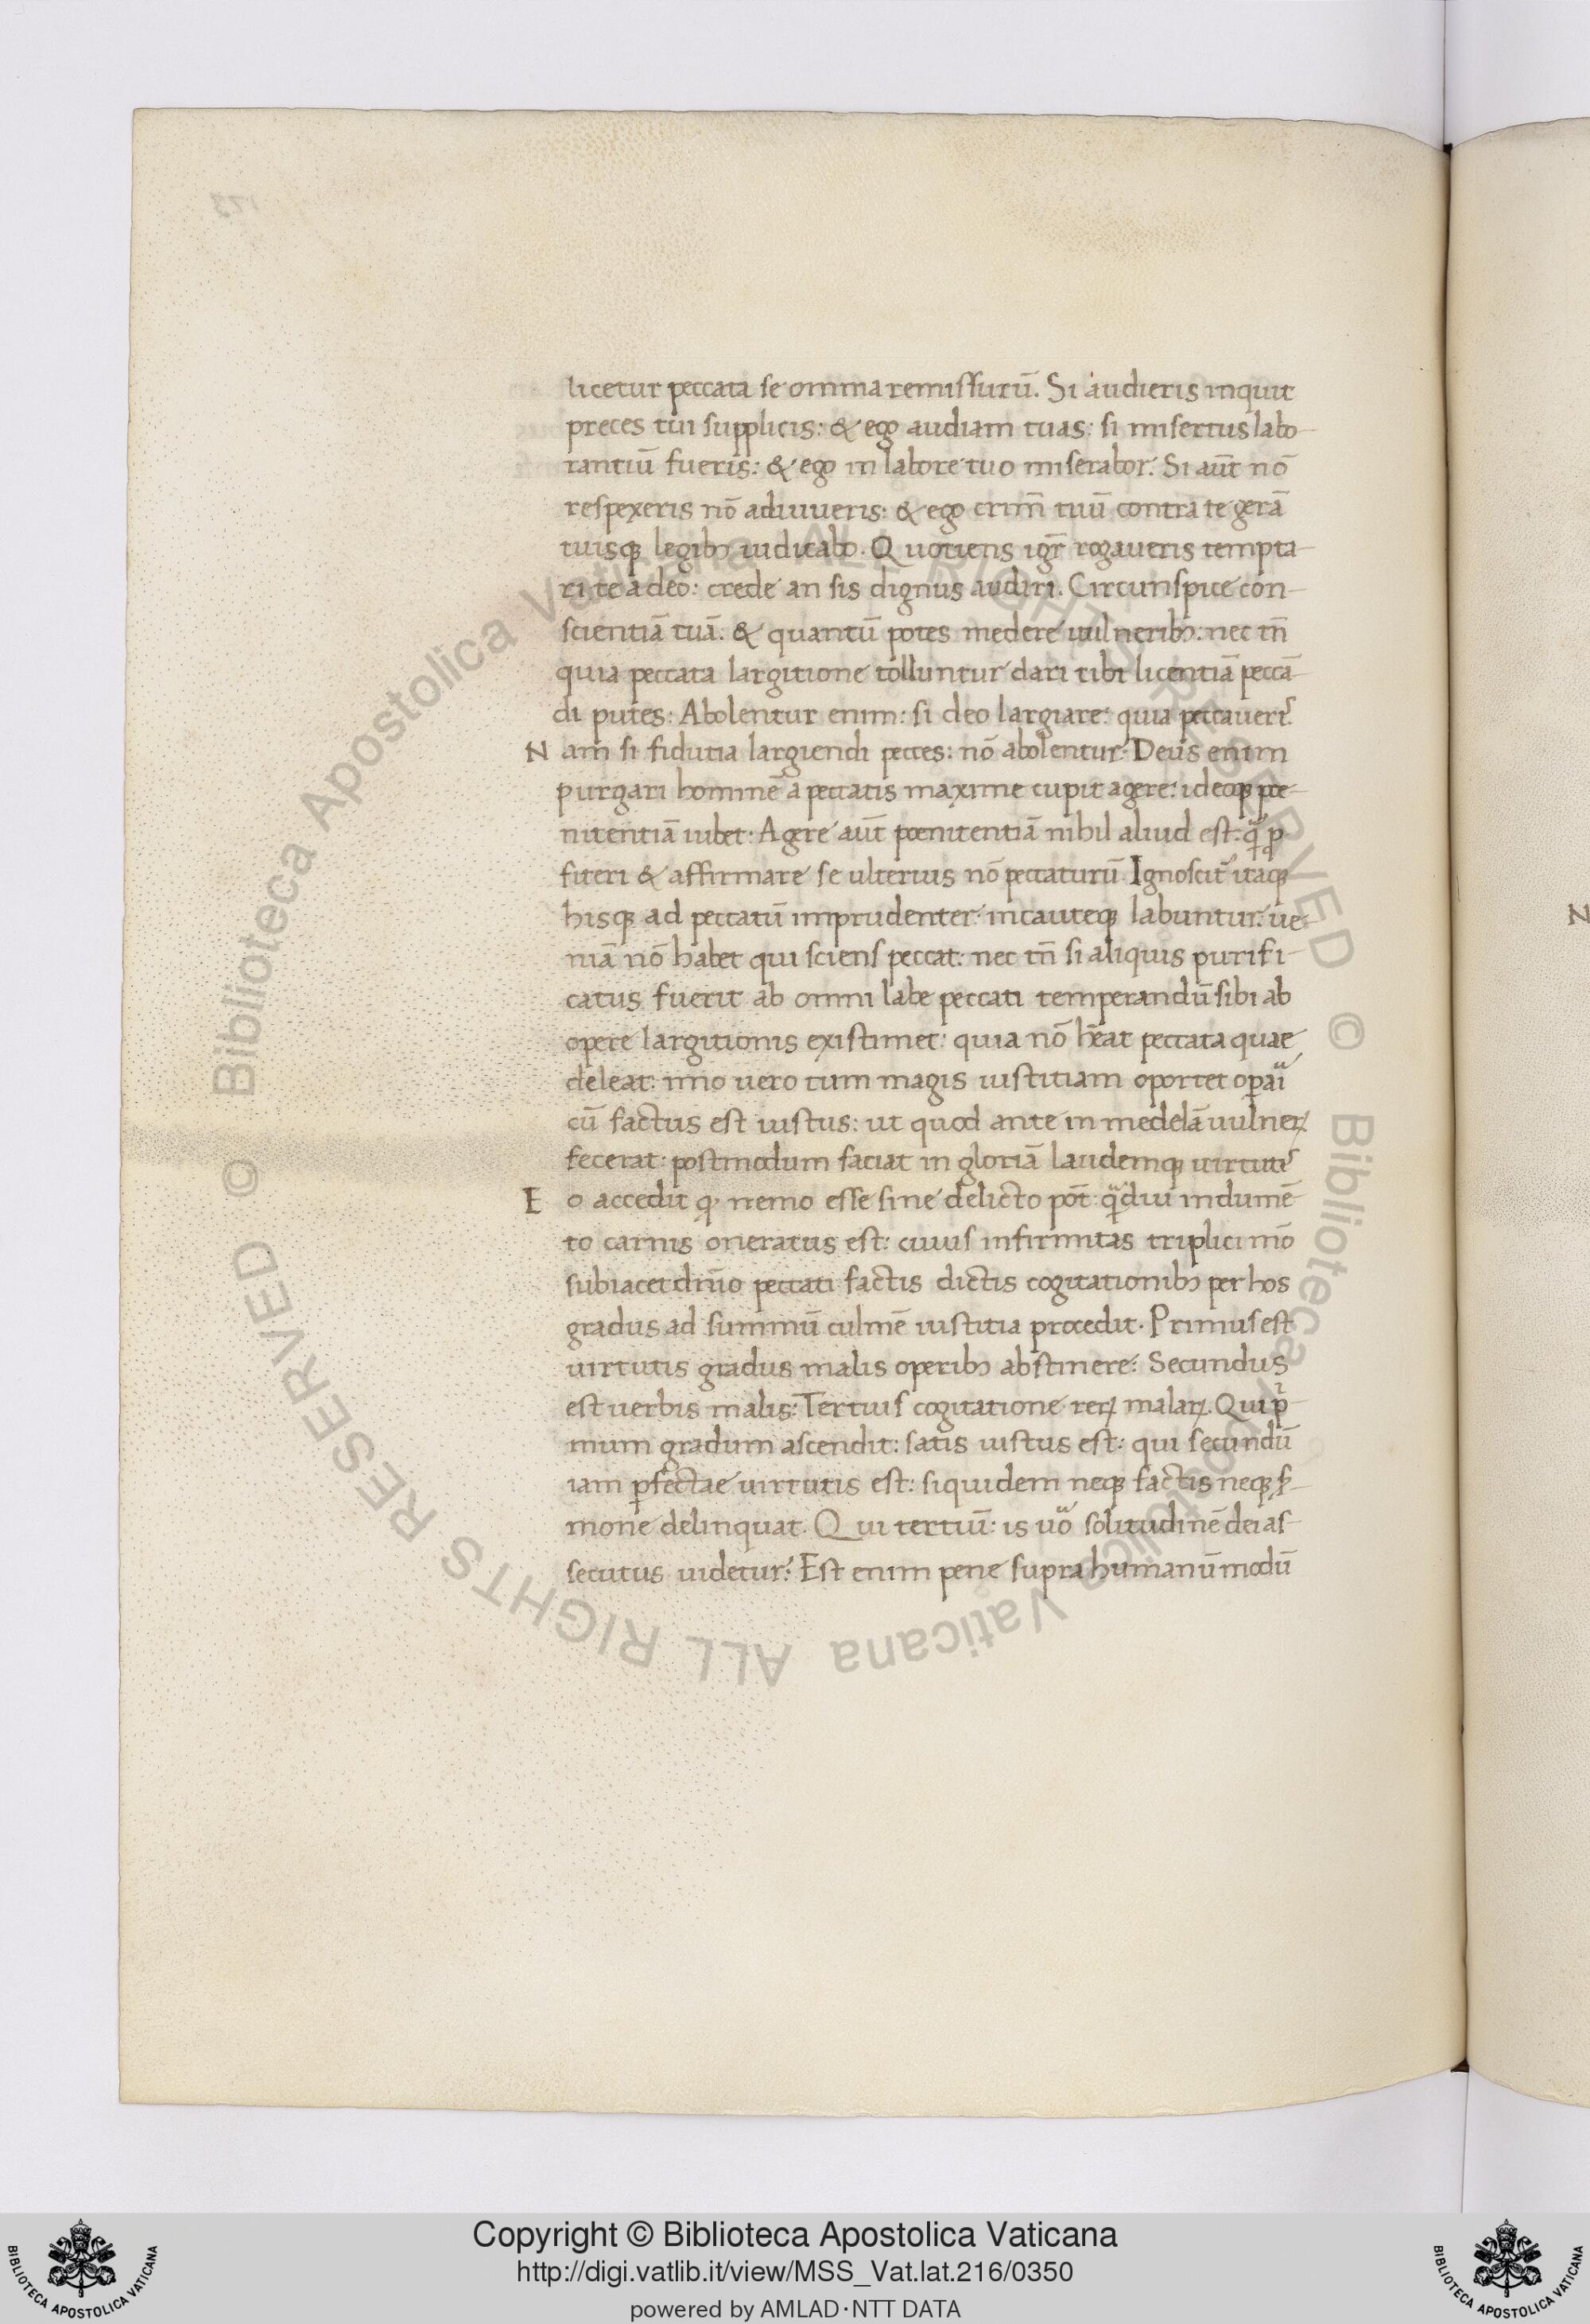 licetur peccata se omnia remissurū. Si audieris inquit
preces tui supplicis: & ego audiam tuas: si misertus labo-
rantiū fueris: & ego in labore tuo miserabor. Si aūt nō
respexeris nō adiuueris: & ego crimē tuū contra te gerā
tuisq; legibꝫ iudicabo. Quotiens igr̄ rogaueris tempta-
ri te a deo: crede an sis dignus audiri. Circunspice con-
scientiā tuā. & quantū potes medere uulneribꝫ: nec tn̄
quia peccata largitione tolluntur dari tibi licentiā peccā-
di putes: Abolentur enim: si deo largiare: quia peccauerꝭ.
Nam si fidutia largiendi pecces: nō abolentur. Deus enim
purgari hominē a peccatis maxime cupit agere: ideoq; poe-
nitentiā iubet: Agere aūt poenitentiā nihil aliud est: q̈̄ ꝓ-
fiteri & affirmare se ulterius nō peccaturū. Ignoscit᷑ itaq;
hisq; ad peccatū imprudenter incauteq; labuntur: ue-
niā nō habet qui sciens peccat: nec tn̄ si aliquis purifi-
catus fuerit ab omni labe peccati temperandū sibi ab
opere largitionis existimet: quia nō hēat peccata quae
deleat: imo uero tum magis iustitiam oportet oꝑari
cū factus est iustus: ut quod ante in medelā uulneꝝ
fecerat: postmodum faciat in gloriā laudemq; uirtutꝭ
Eo accedit ꝙ nemo esse sine delicto pōt: q̈̄diu indumē-
to carnis oneratus est: cuius infirmitas triplici mō
subiacet dn̄io peccati factis dictis cogitationibꝫ per hos
gradus ad summū culmē iustitia procedit. Primus est
uirtutis gradus malis operibꝫ abstinere: Secundus
est uerbis malis: Tertius cogitatione reꝝ malaꝝ. Qui pͥ-
mum gradum ascendit: satis iustus est: qui secundū
iam ꝑfectae uirtutis est: siquidem neq; factis neq; ẜ-
mone delinquat. Qui tertiū: is uͦo solitudinē dei as-
secutus uidetur: Est enim pene supra humanū modū
© Biblioteca Apostolica Vaticana ALL RIGHTS RESERVED © Biblioteca Apostolica Vaticana ALL RIGHTS RESERVED
N
Copyright © Biblioteca Apostolica Vaticana
http://digi.vatlib.it/view/MSS_Vat.lat.216/0350
powered by AMLAD·NTT DATA
BIBLIOTECA APOSTOLICA VATICANA
BIBLIOTECA APOSTOLICA VATICANA